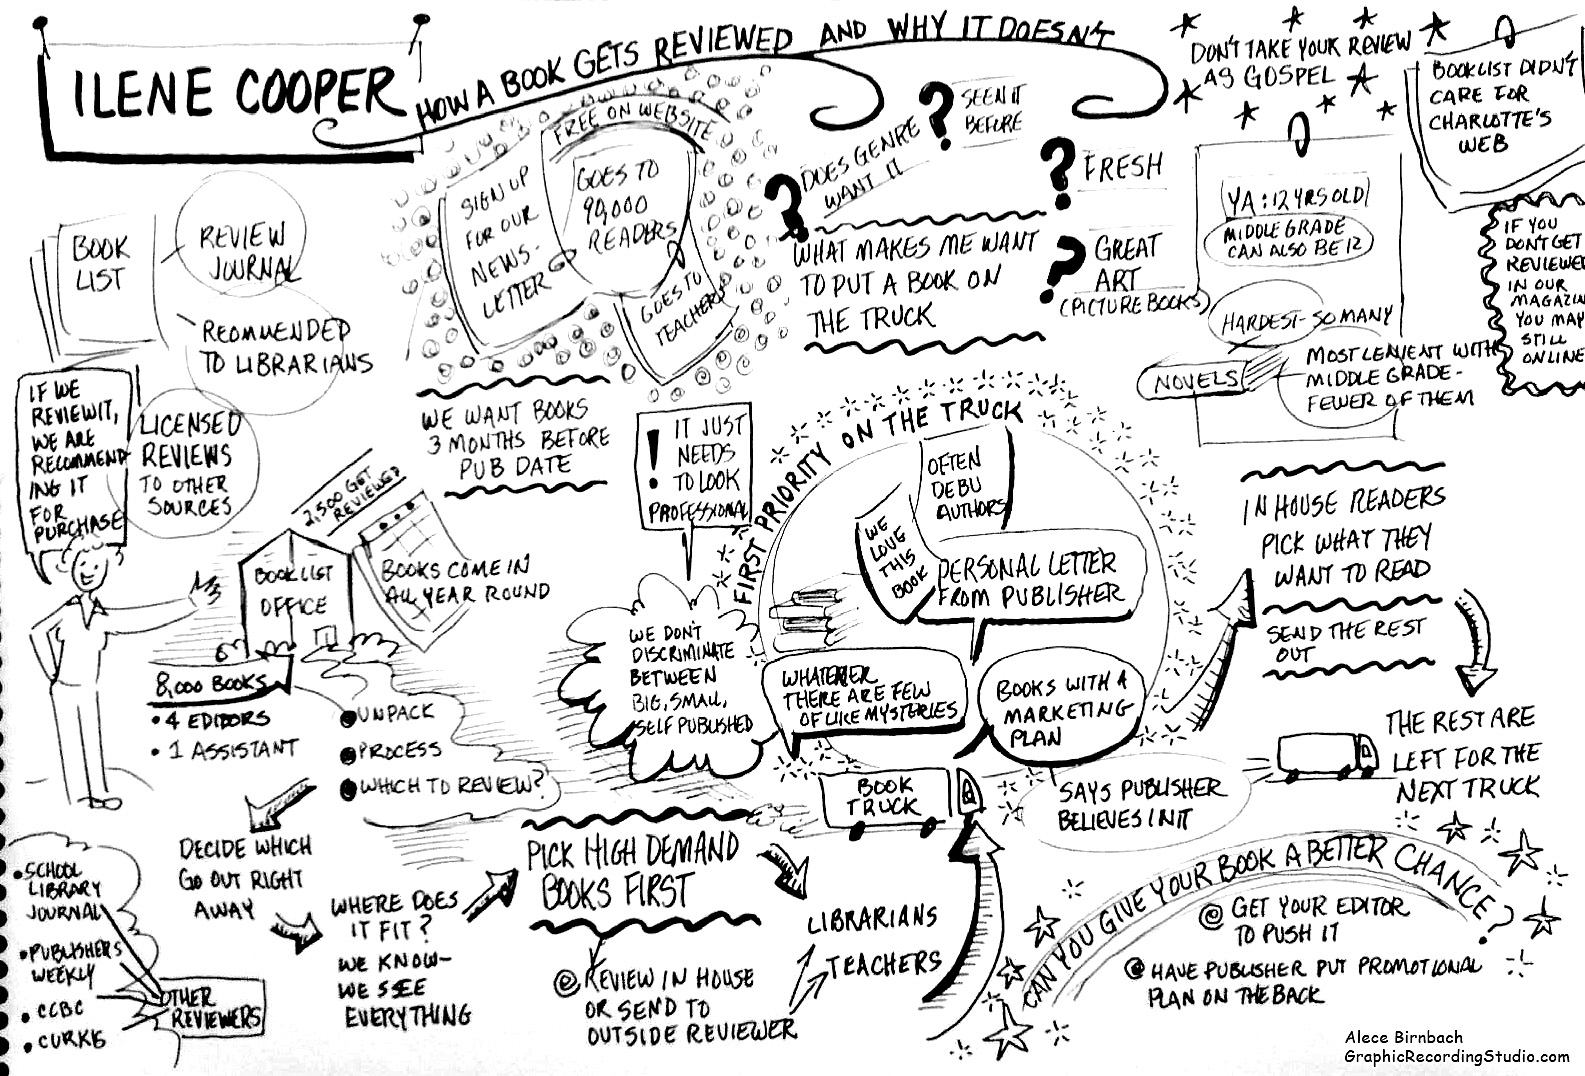 ILENE COOPER
HOW A BOOK GETS REVIEWED AND WHY IT DOESN'T
BOOK
LIST
REVIEW
JOURNAL
REOMMENDED
TO LIBRARIANS
LICENSED
REVIEWS
TO OTHER
SOURCES
IF WE
REVIEW IT,
WE ARE
RECOMMEND-
ING IT
FOR
PURCHASE
FREE ON WEBSITE
SIGN UP
FOR OUR
NEWS-
LETTER
GOES TO
90,000
READERS
GOES TO
TEACHERS
DOES GENRE
WANT IT
SEEN IT
BEFORE
FRESH
GREAT
ART
(PICTURE BOOKS)
WHAT MAKES ME WANT
TO PUT A BOOK ON
THE TRUCK
DON'T TAKE YOUR REVIEW
AS GOSPEL
BOOKLIST DIDN'T
CARE FOR
CHARLOTTE'S
WEB
YA: 12 YRS OLD
MIDDLE GRADE
CAN ALSO BE 12
HARDEST-SO MANY
NOVELS
MOST LENIENT WITH
MIDDLE GRADE-
FEWER OF THEM
IF YOU
DON'T GET
REVIEWED
IN OUR
MAGAZIN
YOU MAY
STILL
ONLINE
WE WANT BOOKS
3 MONTHS BEFORE
PUB DATE
! IT JUST
NEEDS
TO LOOK
PROFESSIONAL
2,500 GET
REVIEWED
BOOKLIST
OFFICE
BOOKS COME IN
ALL YEAR ROUND
8,000 BOOKS
• 4 EDITORS
• 1 ASSISTANT
• UNPACK
• PROCESS
• WHICH TO REVIEW?
WE DON'T
DISCRIMINATE
BETWEEN
BIG, SMALL,
SELF PUBLISHED
FIRST PRIORITY ON THE TRUCK
OFTEN
DEBU
AUTHORS
WE
LOVE
THIS
BOOK
PERSONAL LETTER
FROM PUBLISHER
WHATEVER
THERE ARE FEW
OF LIKE MYSTERIES
BOOKS WITH A
MARKETING
PLAN
SAYS PUBLISHER
BELIEVES IN IT
BOOK
TRUCK
IN HOUSE READERS
PICK WHAT THEY
WANT TO READ
SEND THE REST
OUT
THE REST ARE
LEFT FOR THE
NEXT TRUCK
DECIDE WHICH
GO OUT RIGHT
AWAY
WHERE DOES
IT FIT?
WE KNOW-
WE SEE
EVERYTHING
PICK HIGH DEMAND
BOOKS FIRST
@ REVIEW IN HOUSE
OR SEND TO
OUTSIDE REVIEWER
LIBRARIANS
TEACHERS
• SCHOOL
LIBRARY
JOURNAL
• PUBLISHERS
WEEKLY
• CCBC
• CURKIS
OTHER
REVIEWERS
CAN YOU GIVE YOUR BOOK A BETTER CHANCE?
@ GET YOUR EDITOR
TO PUSH IT
@ HAVE PUBLISHER PUT PROMOTIONAL
PLAN ON THE BACK
Alece Birnbach
GraphicRecordingStudio.com